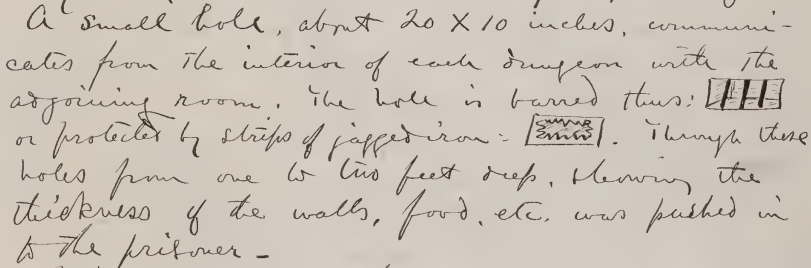 A small hole, about 20 X 10 inches, communi-
cates from the interior of each dungeon with the
adjoining room. The hole is barred thus:
or protected by strips of jagged iron: . Through these
holes from one to two feet deep, showing the
thickness of the walls, food, etc. was pushed in
to the prisoner -